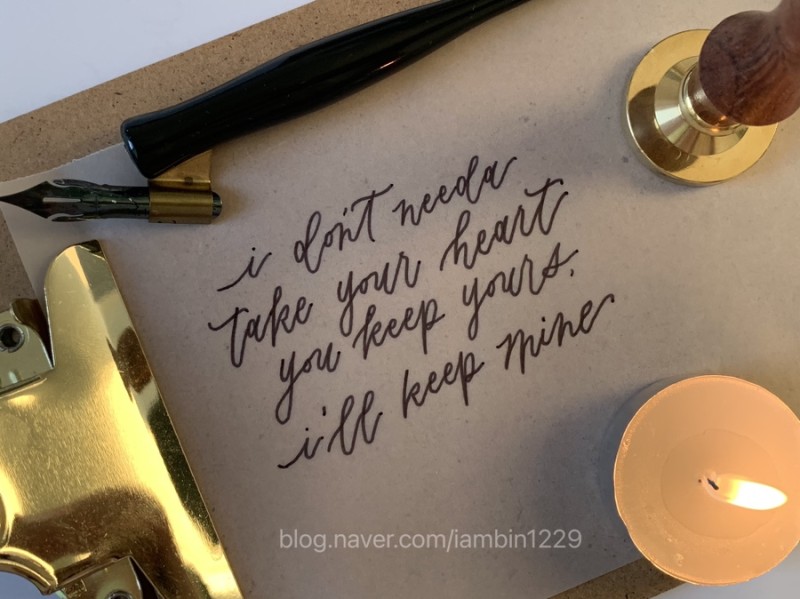 i don't needa
take your heart
you keep yours,
i'll keep mine
blog.naver.com/iambin1229